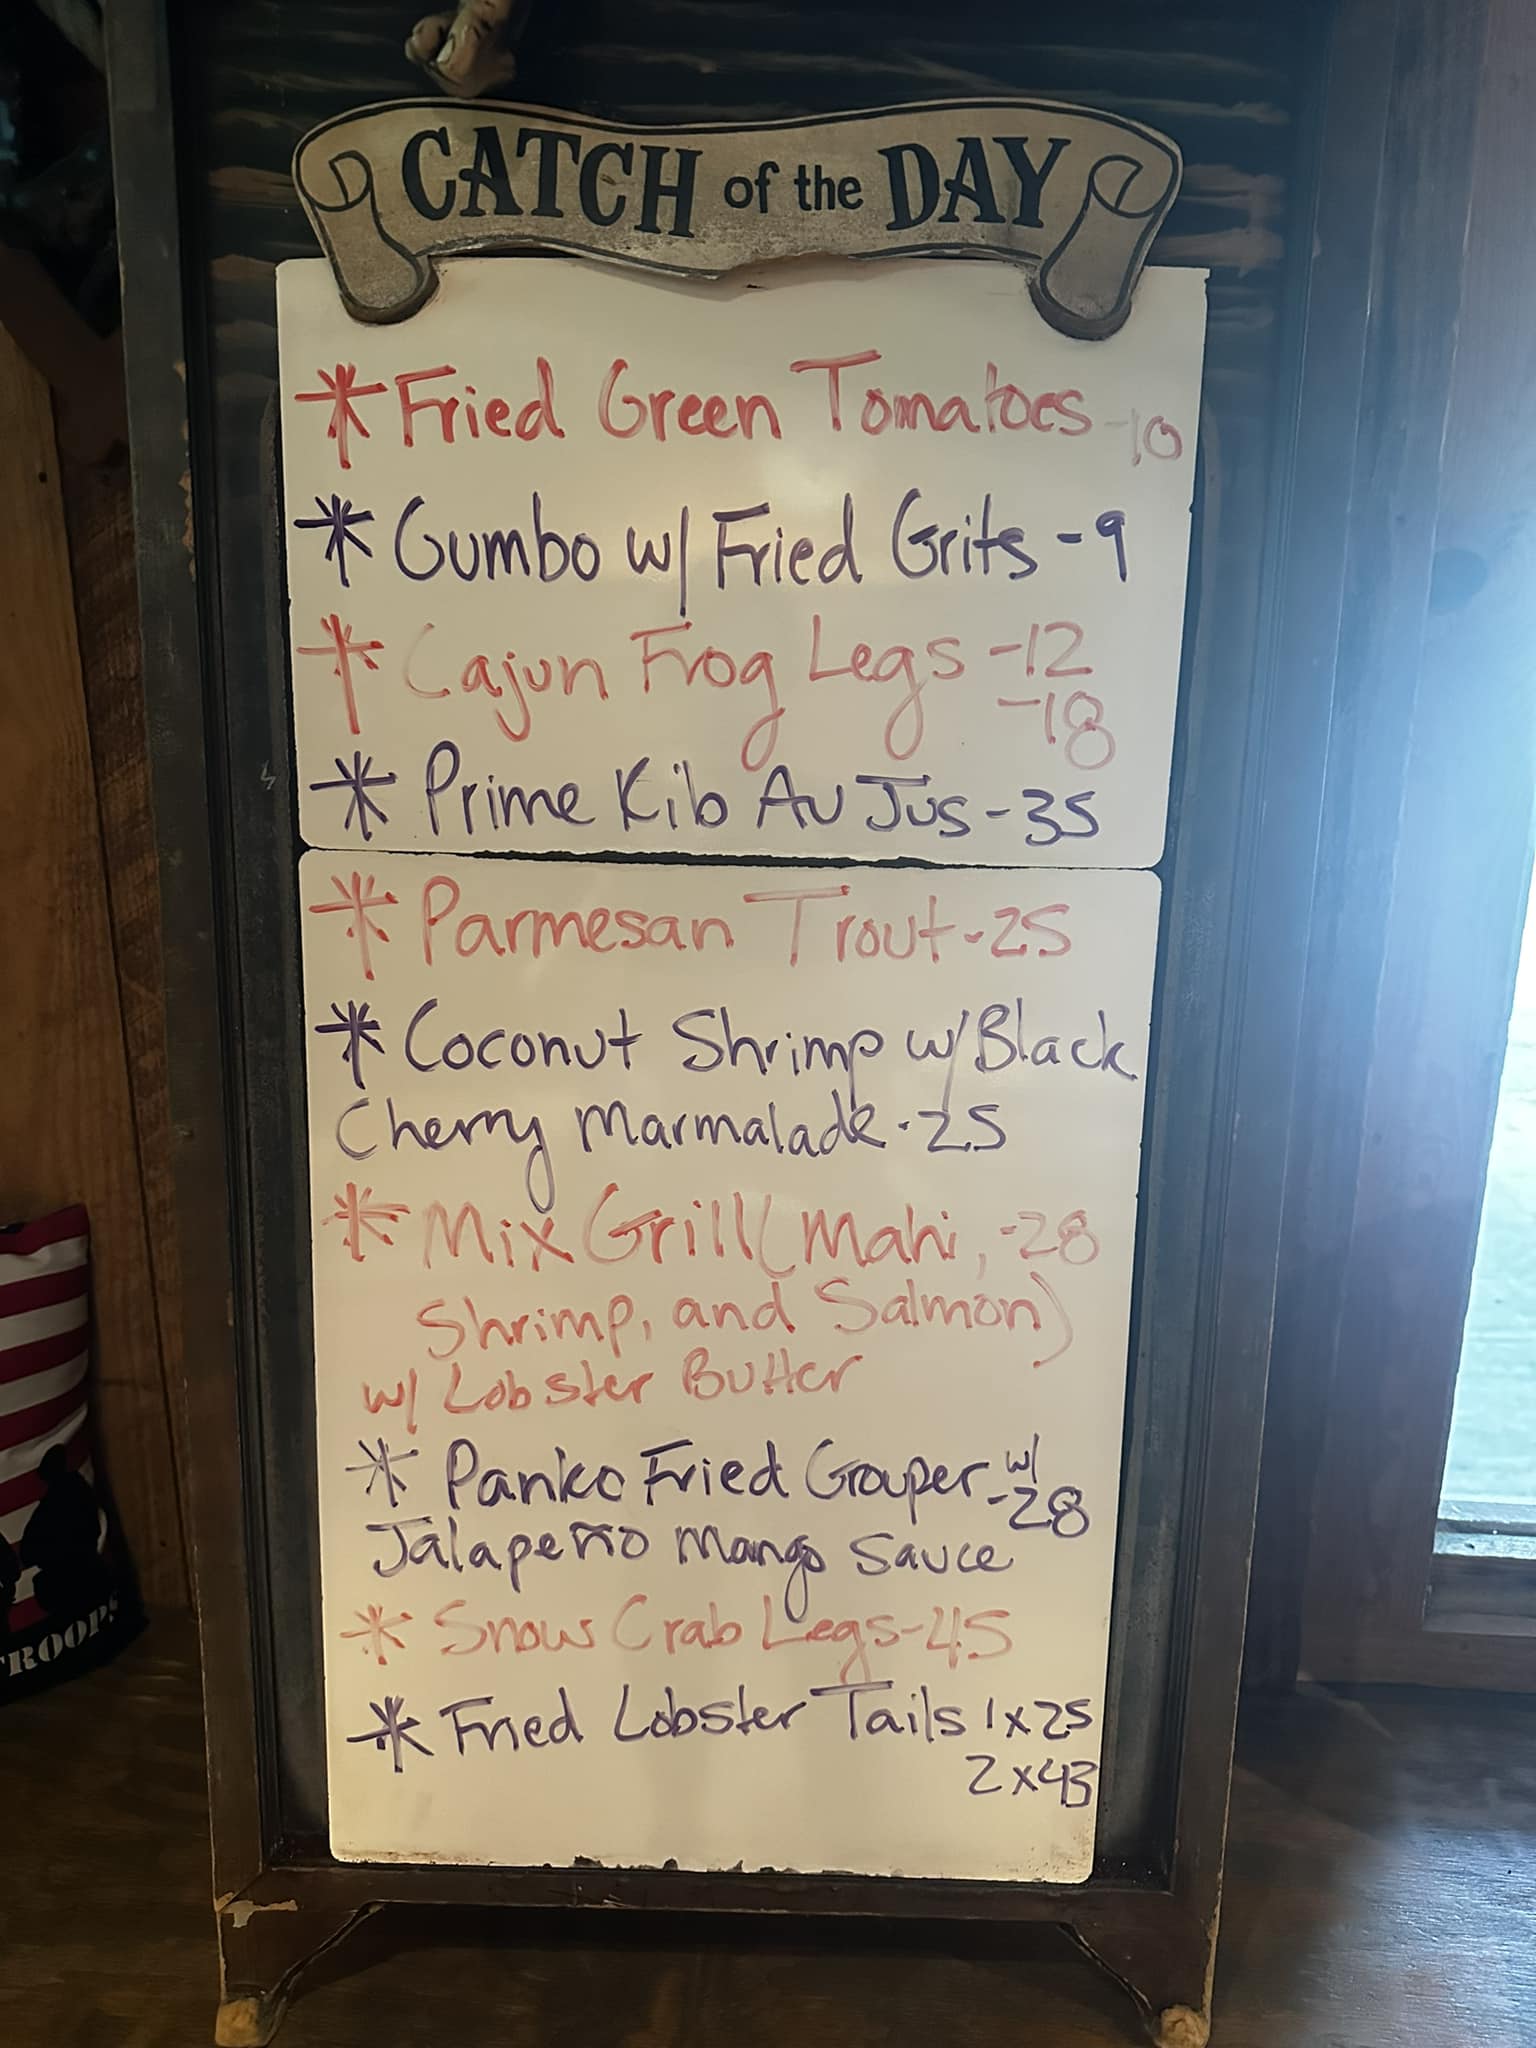 CATCH of the DAY
* Fried Green Tomatoes -10
* Gumbo w/ Fried Grits - 9
* Cajun Frog Legs -12
-18
* Prime Rib Au Jus - 35
* Parmesan Trout - 25
* Coconut Shrimp w/ Black
Cherry Marmalade - 25
* Mix Grill (Mahi, -28
Shrimp, and Salmon)
w/ Lobster Butter
* Panko Fried Grouper - w/
-28
Jalapeño Mango Sauce
* Snow Crab Legs - 45
* Fried Lobster Tails 1x25
2x43
TROOPS